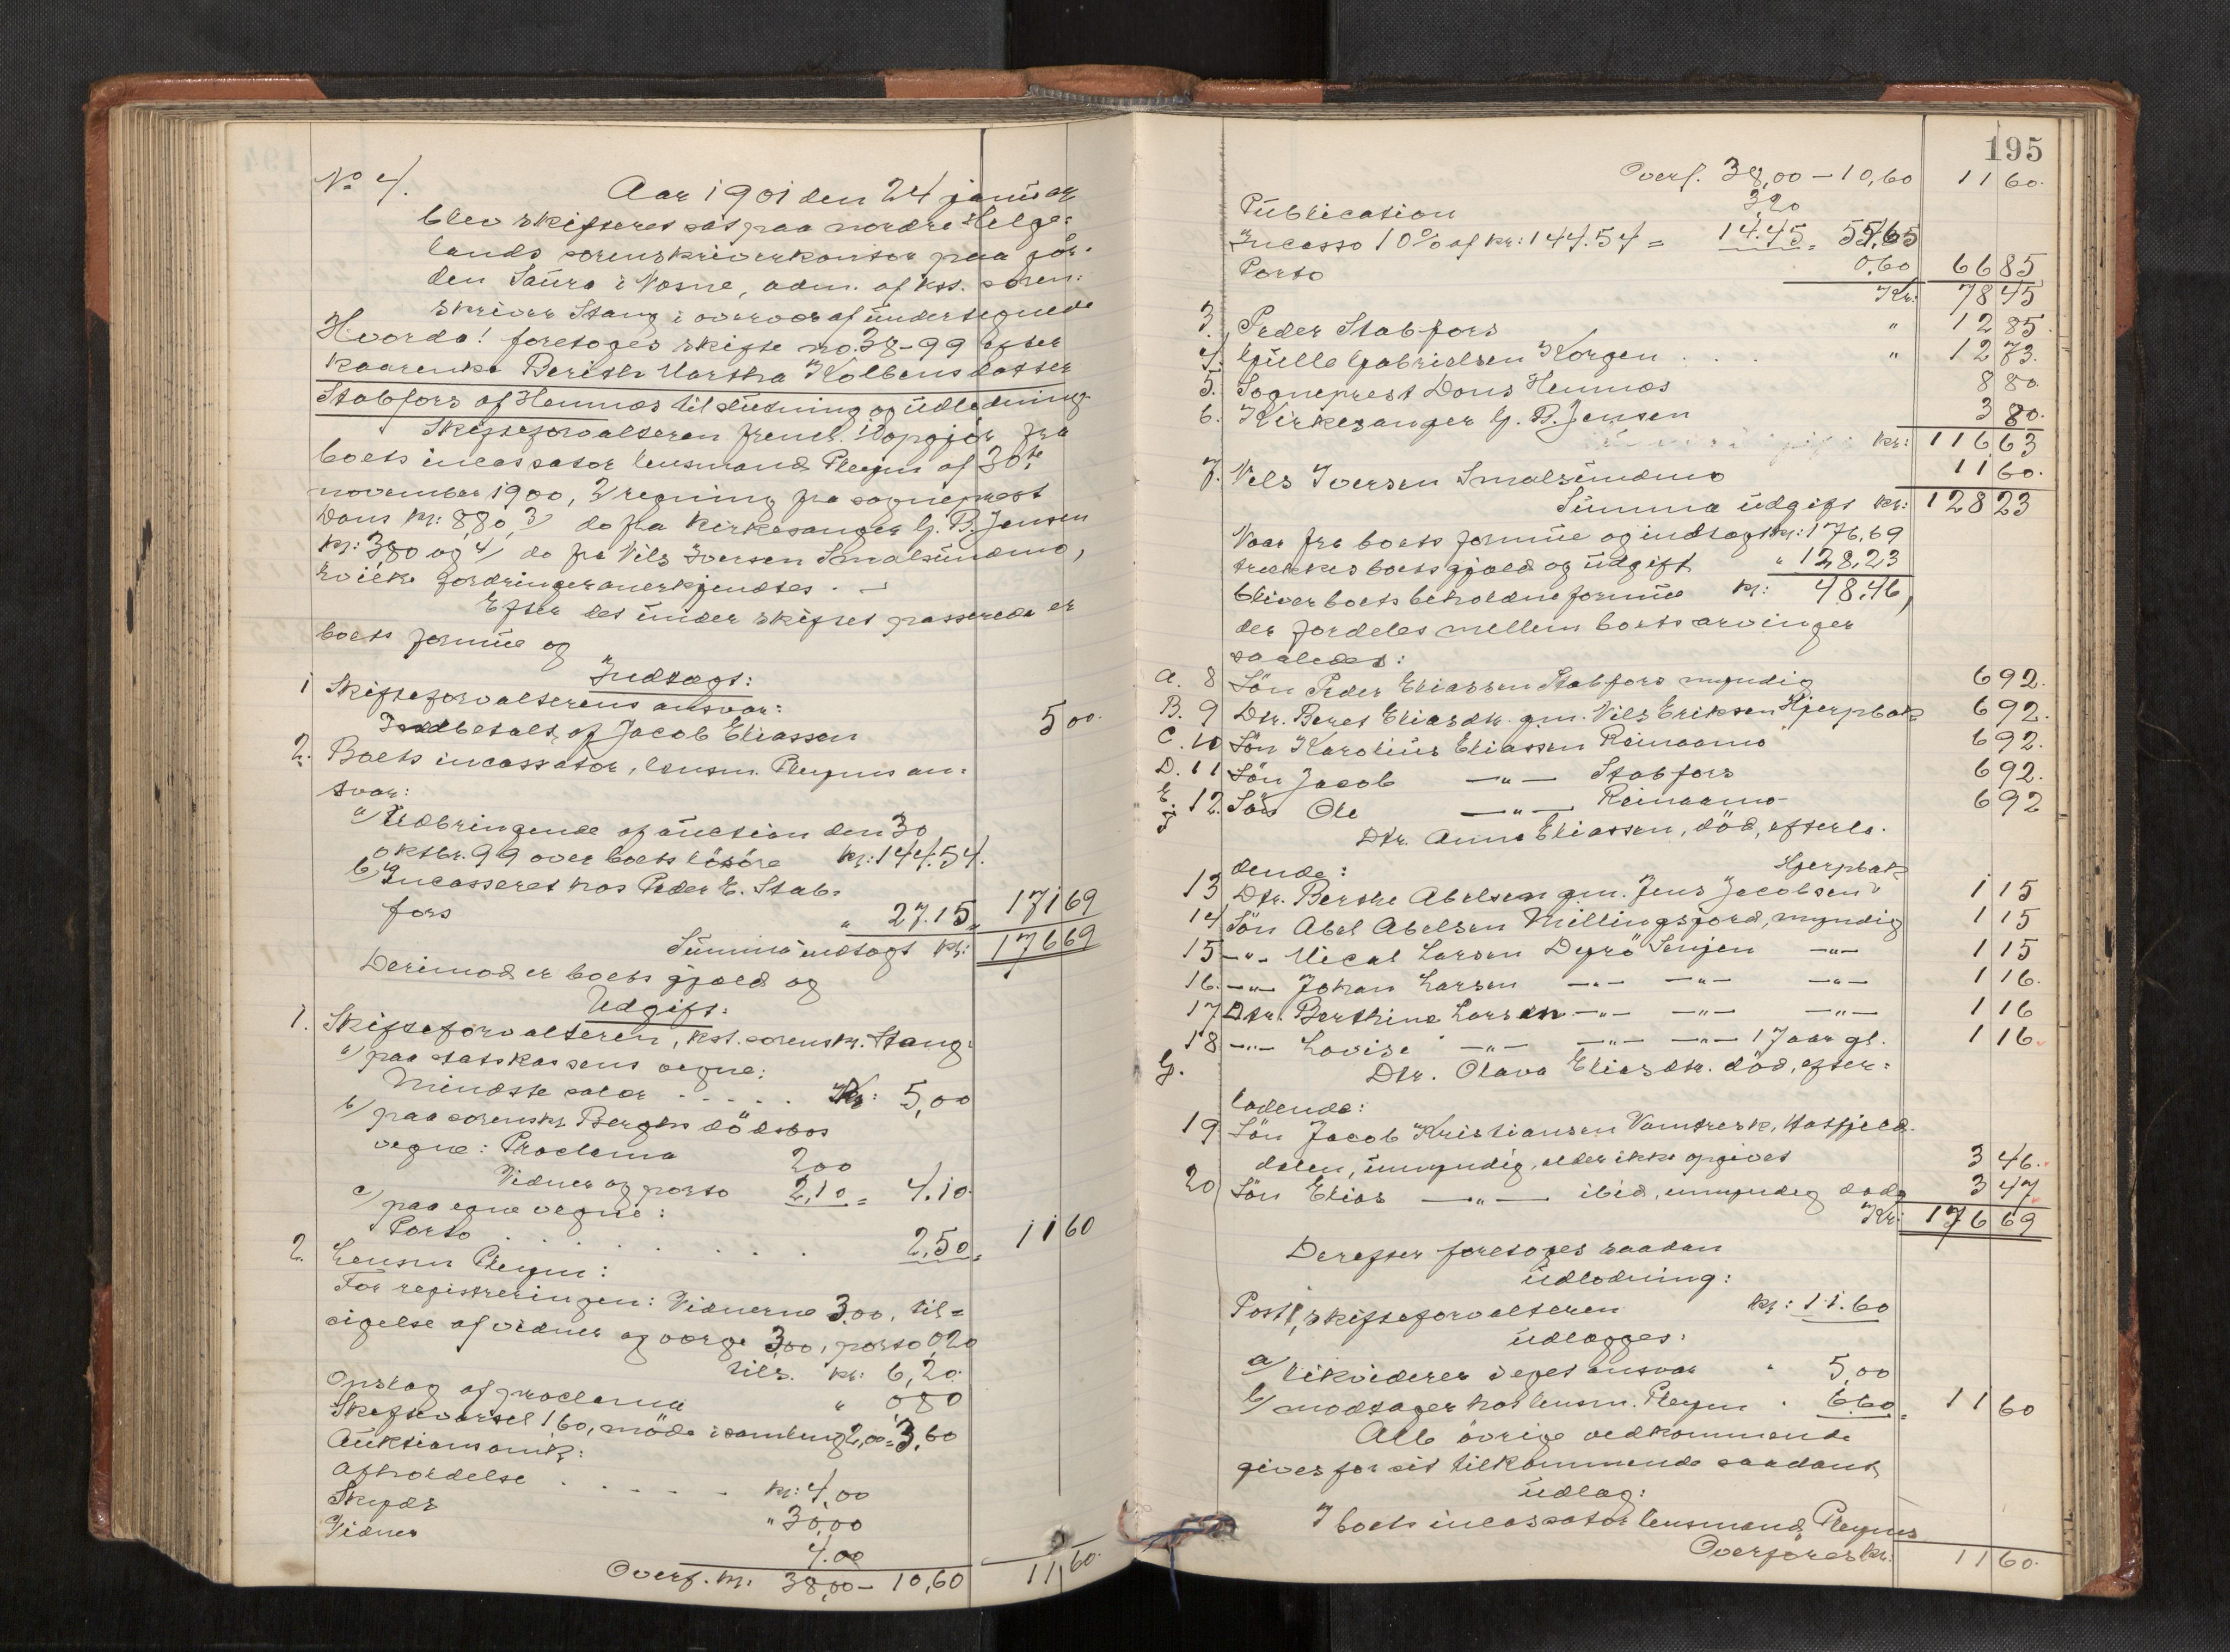 No 4.
Aar 1901 den 24 januar
blev skifteret sat paa nordre Helge-
lands sorenskriverkontor paa går-
den Saura i Nesne, adm. af kst. soren-
skriver Stang i overvær af undertegnede
Hvorda! foretoges skifte no. 38-99 efter
kaarenke Berith Martha Kolbensdatter
Stabfors af Hemnes til slutning og udlodning.
Skifteforvalteren freml. 1) opgjör fra
boets incassator lensmand Pleym af 30te
november 1900, 2) regning fra sogneprest
Dons kr: 8,80, 3) do fra kirkesanger G. B. Jensen
kr: 3,80 og 4) do fra Nils Iversen Smalsundmo,
hvilke fordringer anerkjendtes. —
Efter det under skiftet passerede er
boets formue og
Indtægt:
1 Skifteforvalterens ansvar:
Indbetalt af Jacob Eliassen 5 00.
2. Boets incassator, lensm. Pleyms an-
svar:
a) Udbringende af auction den 30
oktbr. 99 over boets lösöre kr: 144.54.
b) Incasseret hos Peder E. Stab-
fors " 27.15 = 171 69
Summa indtægt kr: 176 69
Derimod er boets gjæld og
Udgift:
1. Skifteforvalteren, kst. sorenskr. Stang:
a) paa statskassens vegne:
Mindste salær . . . . . Kr: 5,00
b) paa sorenskr Berghs dödsbos
vegne: Proclama 2 00
Vidner og porto 2,10 = 4.10
c) paa egne vegne:
Porto . . . . . . . . 2,50 = 11 60
2. Lensm Pleym:
For registreringen: Vidnerne 3.00, til-
sigelse af vidner og værge 3,00, porto 0,20
tils. kr: 6,20
Opslag af proclama " 0 80
Skiftevarsel 1,60, möde i samling 2,00 = 3,60
Auktionsomk:
Afholdelse . . . . . kr: 4,00
Skyds " 30,00
Vidner 4.00
Overf. kr: 38,00 – 10,60 11,60.
195
Overf. 38,00 – 10,60 11 60.
Publication 3,20
Incasso 10% af kr: 144.54 = 14.45 = 55,65
Porto 0,60 66 85
Kr: 78 45
3. Peder Stabfors " 12 85.
4. Gulle Gabrielsen Korgen . . . " 12 73.
5. Sogneprest Dons Hemnes 8 80.
6. Kirkesanger G. B. Jensen 3 80.
kr: 116 63
7. Nils Iversen Smalsundmo 11 60.
Summa udgift kr: 128 23
Naar fra boets formue og indtægt kr: 176,69
trækkes boets gjæld og udgift " 128,23
bliver boets beholdne formue kr: 48,46,
der fordeles mellem boets arvinger
saaledes:
A. 8 Sön Peder Eliassen Stabfors myndig 6 92.
B. 9 Dtr. Beret Eliasdtr. gm. Nils Eriksen Hjerpbak 6 92.
C. 10 Sön Karolius Eliassen Reinaamo 6 92.
D. 11 Sön Jacob —"— Stabfors 6 92.
E. 12. Sön Ole —"— Reinaamo 6 92
Dtr. Anne Eliassen, död, efterla-
dende: Hjerpbak
13 Dtr. Berthe Abelsen gm. Jens Jacobsen 1 15
14 Sön Abel Abelsen Millingsjord, myndig 1 15
15 —"— Mical Larsen Dyrö Senjen —"— 1 15
16. —"— Johan Larsen —"— —"— —"— 1 16.
17 Dtr. Berthine Larsen —"— —"— —"— 1 16
18 —"— Lovise —"— —"— —"— 17 aar gl. 1 16.
G. Dtr. Olava Eliasdtr. död, efter-
ladende:
19 Sön Jacob Kristiansen Vamtresk, Hatfjeld-
dalen, umyndig, alder ikke opgivet 3 46.
20 Sön Elias —"— ibid, umyndig dodo 3 47
Kr: 176 69
Derefter foretoges saadan
udlodning:
Post 1, skifteforvalteren kr: 11.60
udlægges:
a) likviderer i eget ansvar " 5,00
b) modtager hos lensm. Pleym " 6.60 = 11 60
Alle övrige vedkommende
gives for sit tilkommende saadant
udlæg:
I boets incassator lensmand Pleyms
Overföres kr: 11 60.